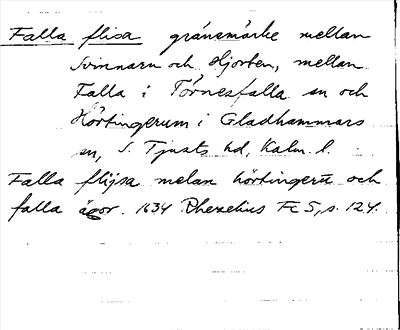 Falla flisa gränsmärke mellan
Svinnaru och Hjorten, mellan
Falla i Törnesfalla sn och
Hörtingerum i Gladhammars
sn, S. Tjusts hd, Kalm. l.
Falla flijsa melan hörtingerū och
falla ägor. 1634 Rhezelius Fc 5, s. 124.